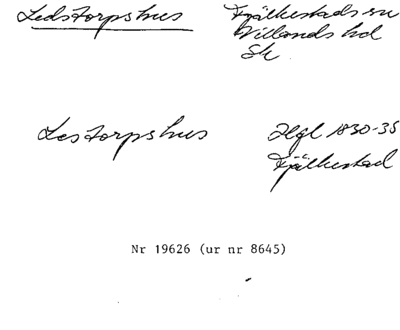 Ledstorpshus
Fjälkestads sn
Villands hd
Sk
Lestorpshus
Hfl 1830-35
Fjälkestad
Nr 19626 (ur nr 8645)